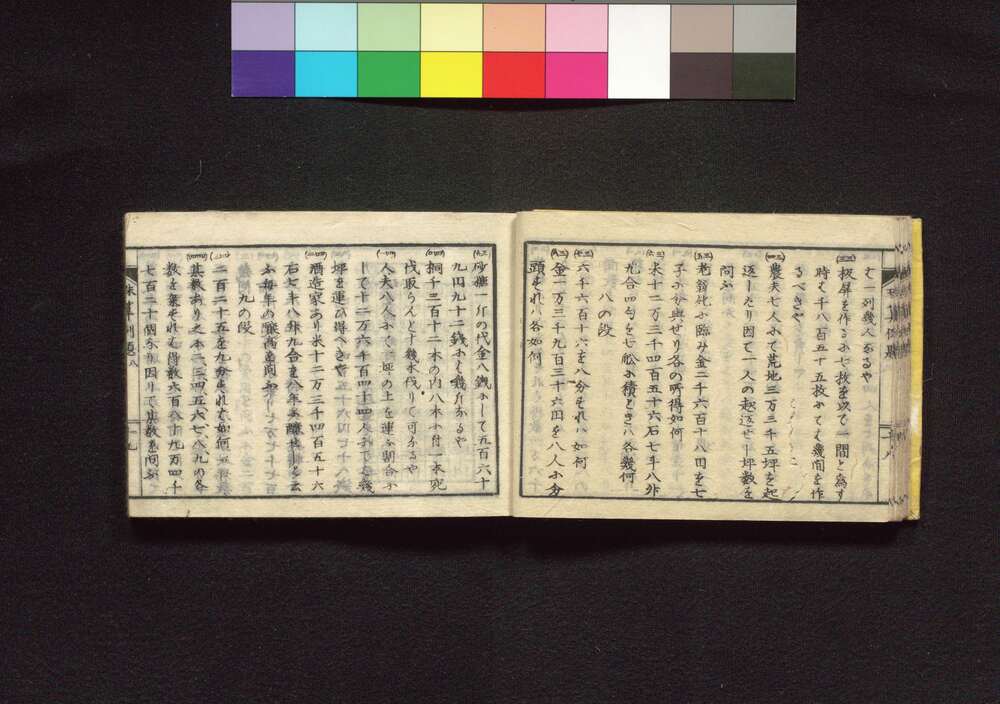 む一列幾人なるや
(三三)板屏を作るに七枚を以て一間と為す
時は千八百五十五枚にては幾間を作
るべきや
(三四)農夫七人にて荒地三万三千五坪を起
返したり因て一人の起返せし坪数を
問ふ
(三五)老翁死に臨み金二千六百十八円を七
子に分與せり各の所得如何
(三六)米十二万三千四百五十六石七斗八升
九合四勺を七舩に積ときハ各幾何
八の段
(三七)六千六百十六を八分すれハ如何
(三八)金一万三千九百三十六円を八人に分
頭すれハ各如何
(三九)砂糖一斤の代金八銭にして五百六十
九円九十二銭にハ幾斤なるや
(四十)桐千三百十二本の内八本に付一本宛
伐取らんと十幾本伐りて可なるや
人夫八人にて一坪の土を運ぶ割合に
して十二万六千百四十四人にてハ幾
坪を運び得べきや
酒造家あり米十二万三千四百五十六
石七斗八升九合を八年に醸せしと云
ふ毎年の醸高を問ふ
九の段
二百二十五を九分すれハ如何
其数あり之に二三四五六七八九の各
数を乗すれハ得数六百八十九万四千
七百二十個なり因りて其数を問ふ